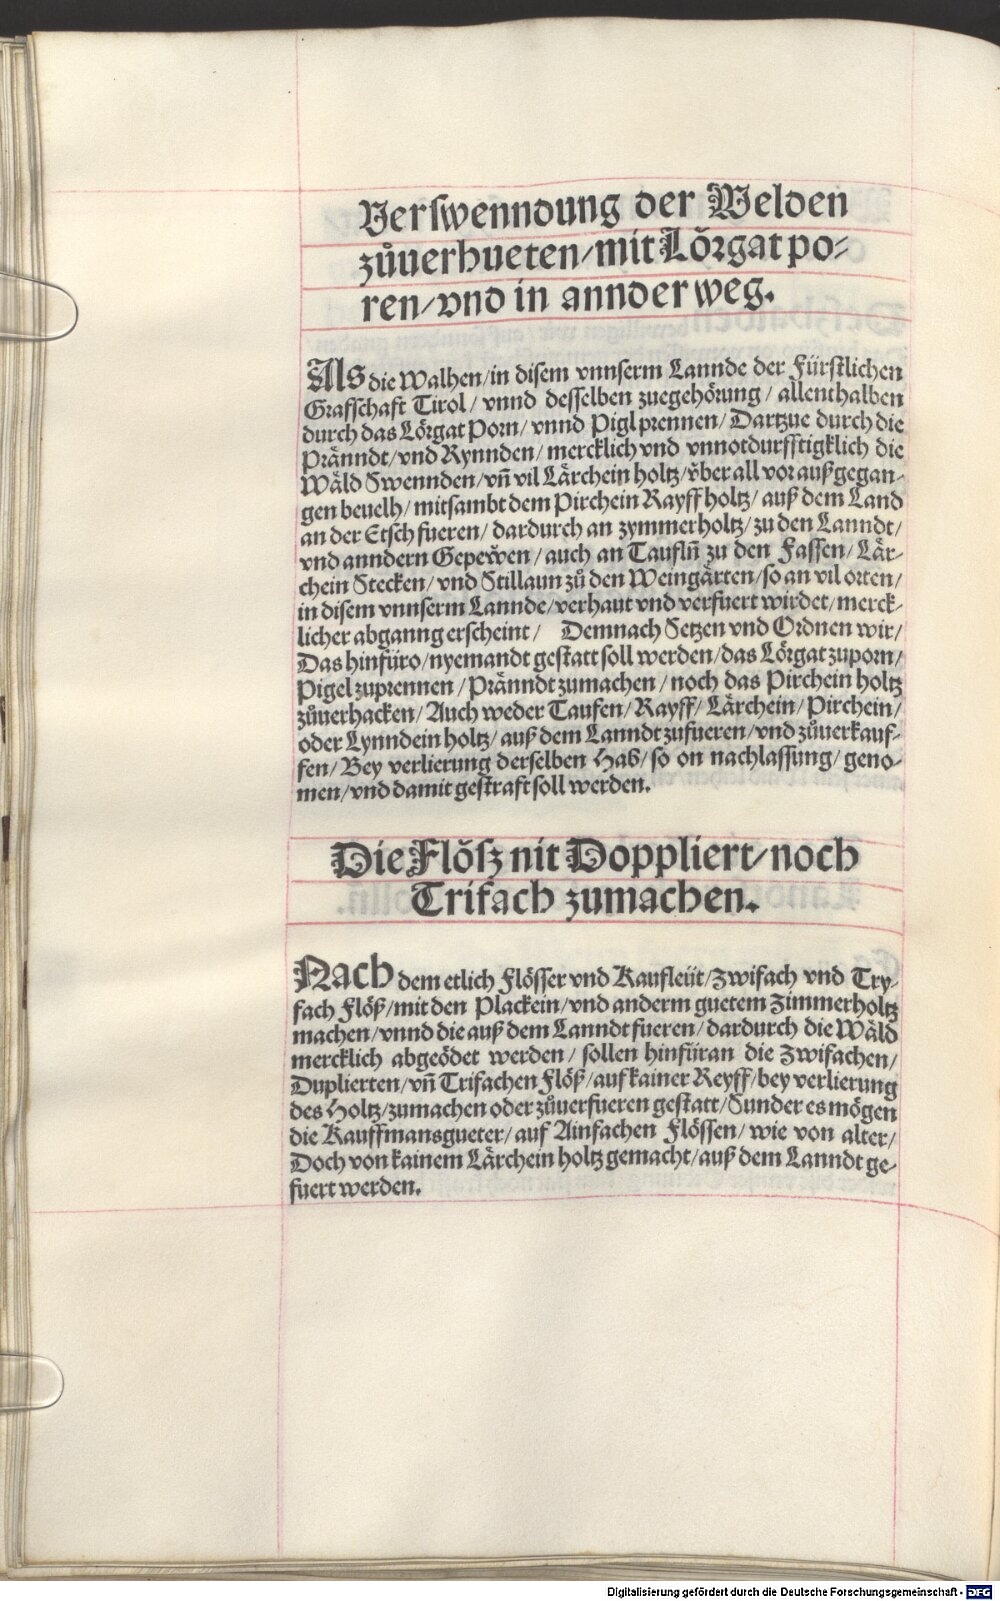 Verswenndung der Welden
zůuerhueten/mit Lörgat po-
ren/vnd in annder weg.
Als die Walhen/in disem vnnserm Lannde der Fürstlichen
Grafschaft Tirol/ vnnd desselben zuegehörung/ allenthalben
durch das Lörgat Porn/ vnnd Pigl prennen/ Dartzue durch die
Pränndt/vnd Rynnden/ mercklich vnd vnnotdurfftigklich die
Wäld Swennden/vñ vil Lärchein holtz/v̈ber all vor außgegan-
gen beuelh/ mitsambt dem Pirchein Rayff holtz/ auß dem Land
an der Etsch fueren/ dardurch an zymmerholtz/ zu den Lanndt/
vnd anndern Gepew̌en/ auch an Tauflñ zu den Fassen/ Lär-
chein Stecken/ vnd Stillaun zů den Weingärten/ so an vil orten/
in disem vnnserm Lannde/verhaut vnd verfuert wirdet/ merck-
licher abganng erscheint/ Demnach Setzen vnd Ordnen wir/
Das hinfüro/nyemandt gestatt soll werden/das Lörgat zuporn/
Pigel zuprennen/Pränndt zumachen/noch das Pirchein holtz
zůuerhacken/ Auch weder Taufen/ Rayff/ Lärchein/ Pirchein/
oder Lynndein holtz/ auß dem Lanndt zufueren/vnd zůuerkauf-
fen/ Bey verlierung derselben Hab/ so on nachlassung/ geno-
men/vnd damit gestraft soll werden.
Die Flösz nit Doppliert/noch
Trifach zumachen.
Nach dem etlich Flösser vnd Kaufleüt/Zwifach vnd Try-
fach Flöß/mit den Plackein/vnd anderm guetem Zimmerholtz
machen/vnnd die auß dem Lanndt fueren/ dardurch die Wäld
mercklich abgeödet werden/ sollen hinfüran die Zwifachen/
Duplierten/vñ Trifachen Flöß/auf kainer Reyff/bey verlierung
des Holtz/zumachen oder zůuerfueren gestatt/Sunder es mögen
die Kauffmansgueter/auf Ainfachen Flössen/ wie von alter/
Doch von kainem Lärchein holtz gemacht/auß dem Lanndt ge-
fuert werden.
Digitalisierung gefördert durch die Deutsche Forschungsgemeinschaft - DFG